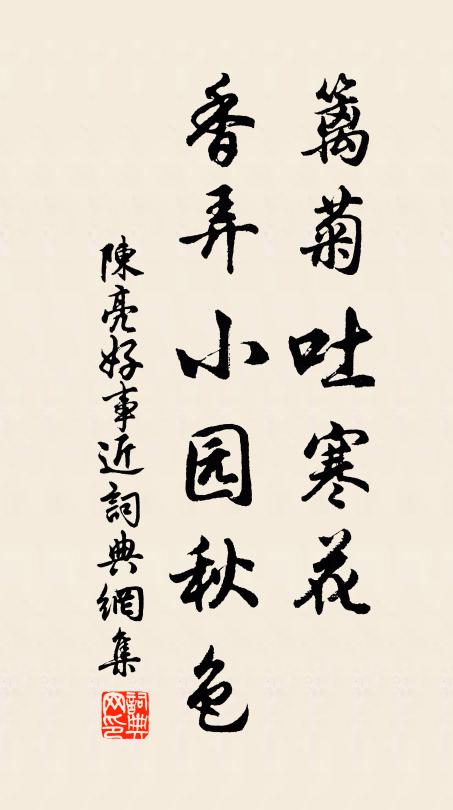 籬菊吐寒花
香弄小园秋色
陳亮好事近詞典網集
詞典网印